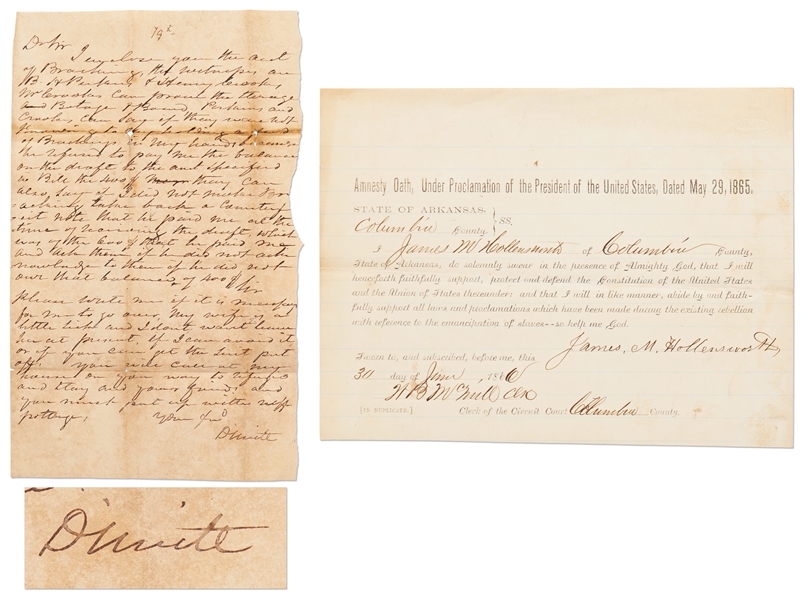 Dr Sir
I enclose you the act
of Brachings, the witnesses are
B H Perkins & Henry Crooks
Mr Crooks can prove the
and Perkins and
Crooks, can say if they were not
to my holding
of Brachings in my hands because
he refused to pay me the balance
on the draft to the and specified
in Bill the 400$ they can
also say if I did not make Br
aching take back a Counterf
eit note that he paid me at the
time of the draft, which
was of the 600$ that he paid me
and ask them if he did not ack
nowledge to them if he did not
owe that balance of 400$
please write me if it is necessary
for me to go over, My wife is a
little sick and I dont want leave
her at present if I can avoid it
or if you can get the suit put
off. you will call at my
house on you way to
and stay and your friend and
you must put up with
pottage, Your Frd

Amnesty Oath, Under Proclamation of the President of the United States, Dated May 29, 1865.
STATE OF ARKANSAS,
Columbia County. } SS.
I James M Hollensworth of Columbia County,
State of Arkansas, do solemnly swear in the presence of Almighty God, that I will
henceforth faithfully support, protect and defend the Constitution of the United States
and the Union of States thereunder: and that I will in like manner, abide by and faith-
fully support all laws and proclamations which have been made during the existing rebellion
with reference to the emancipation of slaves—so help me God.
James, M. Hollensworth
Sworn to, and subscribed, before me, this
30 day of , 1866
Clk
[IN DUPLICATE.] Clerk of the Circuit Court Columbia County.